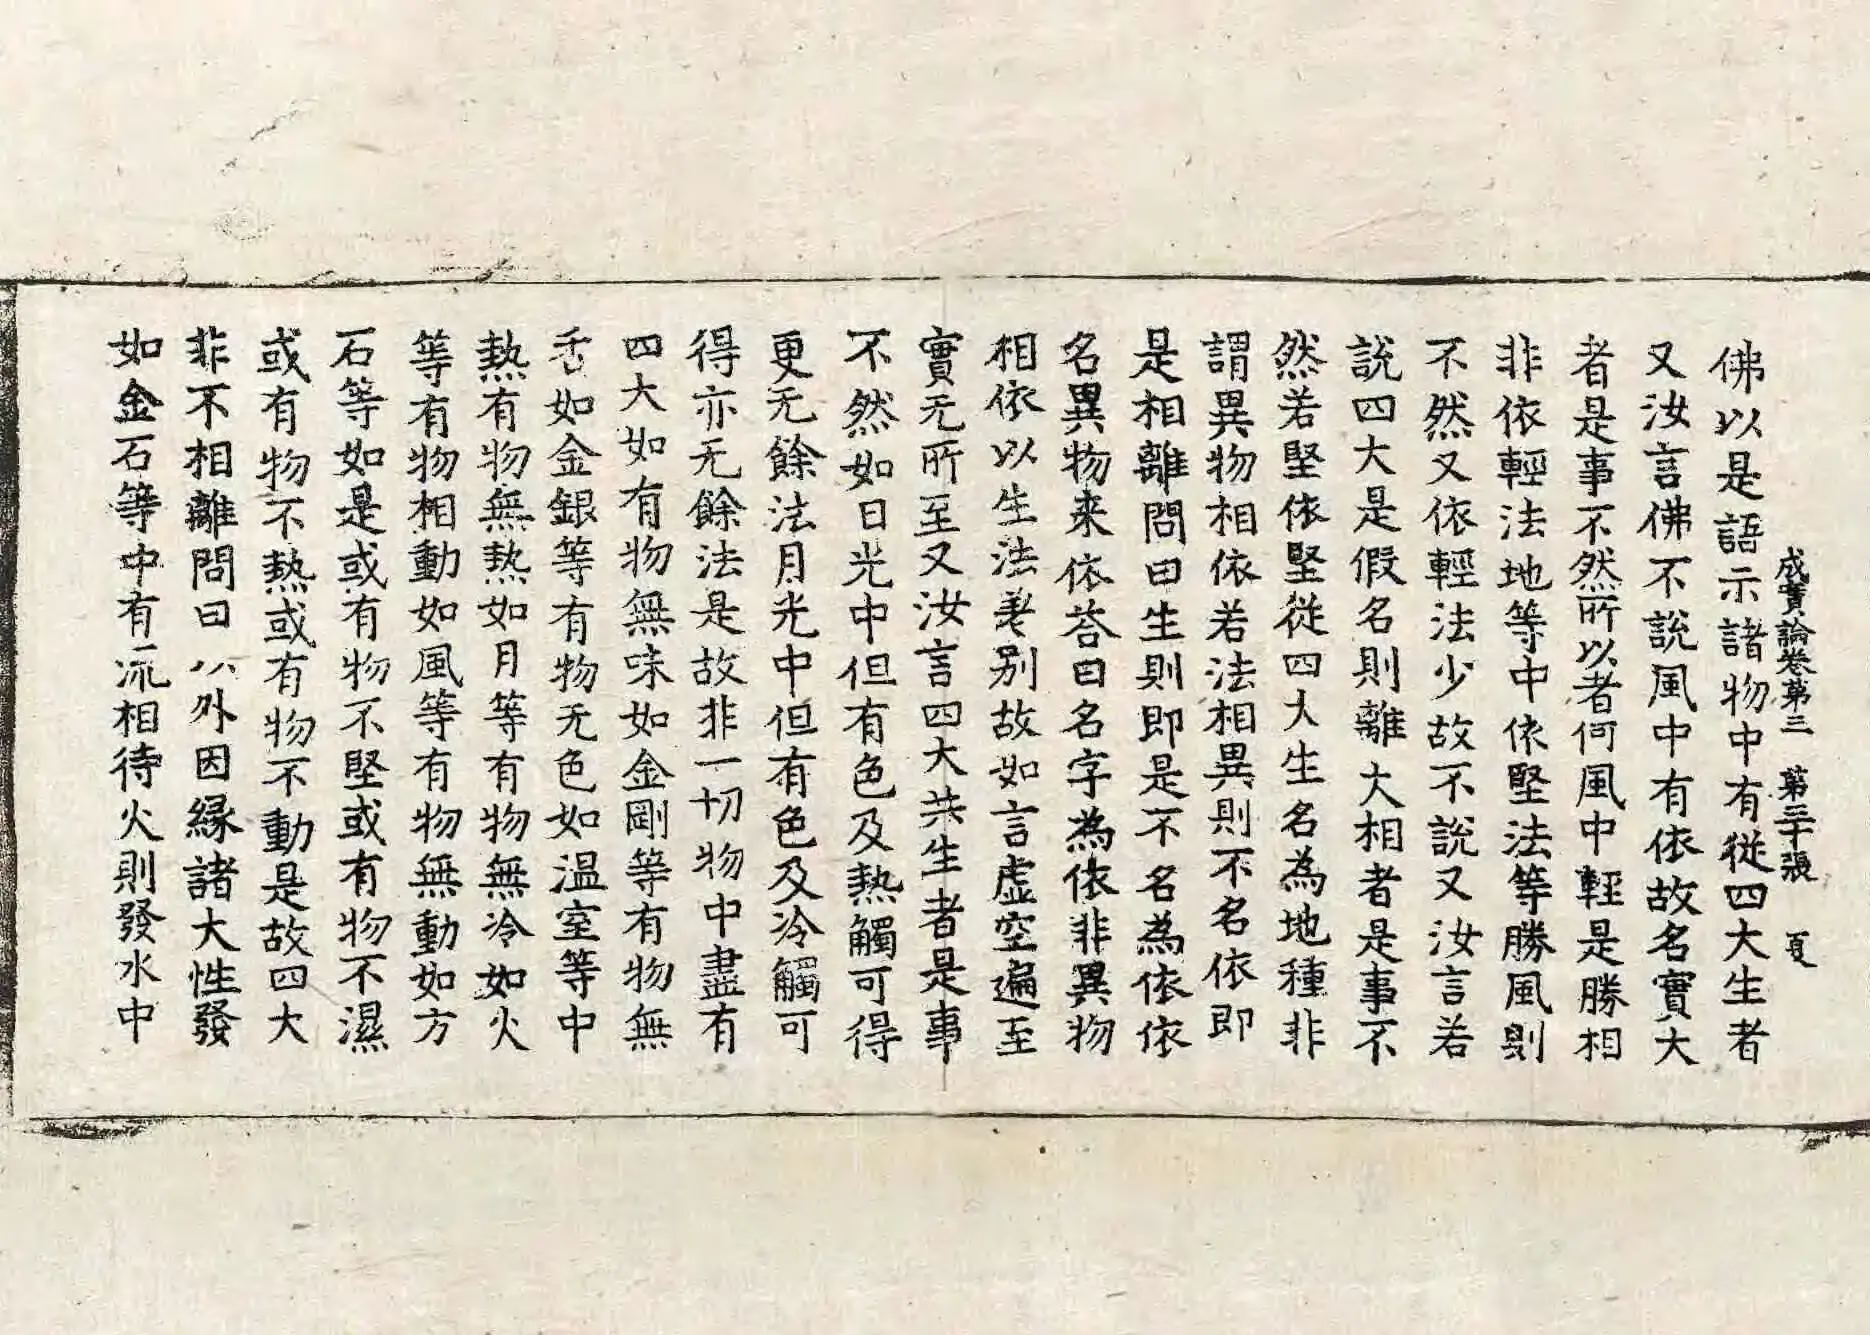 成實論卷第三 第三十張 夏
佛以是語示諸物中有從四大生者
又汝言佛不說風中有依故名實大
者是事不然所以者何風中輕是勝相
非依輕法地等中依堅法等勝風則
不然又依輕法少故不說又汝言若
說四大是假名則離大相者是事不
然若堅依堅從四大生名為地種非
謂異物相依若法相異則不名依即
是相離問曰生則即是不名為依依
名異物来依荅曰名字為依非異物
相依以生法差别故如言虛空遍至
實无所至又汝言四大共生者是事
不然如日光中但有色及熱觸可得
更无餘法月光中但有色及冷觸可
得亦无餘法是故非一切物中盡有
四大如有物無味如金剛等有物無
香如金銀等有物无色如温室等中
熱有物無熱如月等有物無冷如火
等有物相動如風等有物無動如方
石等如是或有物不堅或有物不濕
或有物不熱或有物不動是故四大
非不相離問曰以外因緣諸大性發
如金石等中有流相待火則發水中